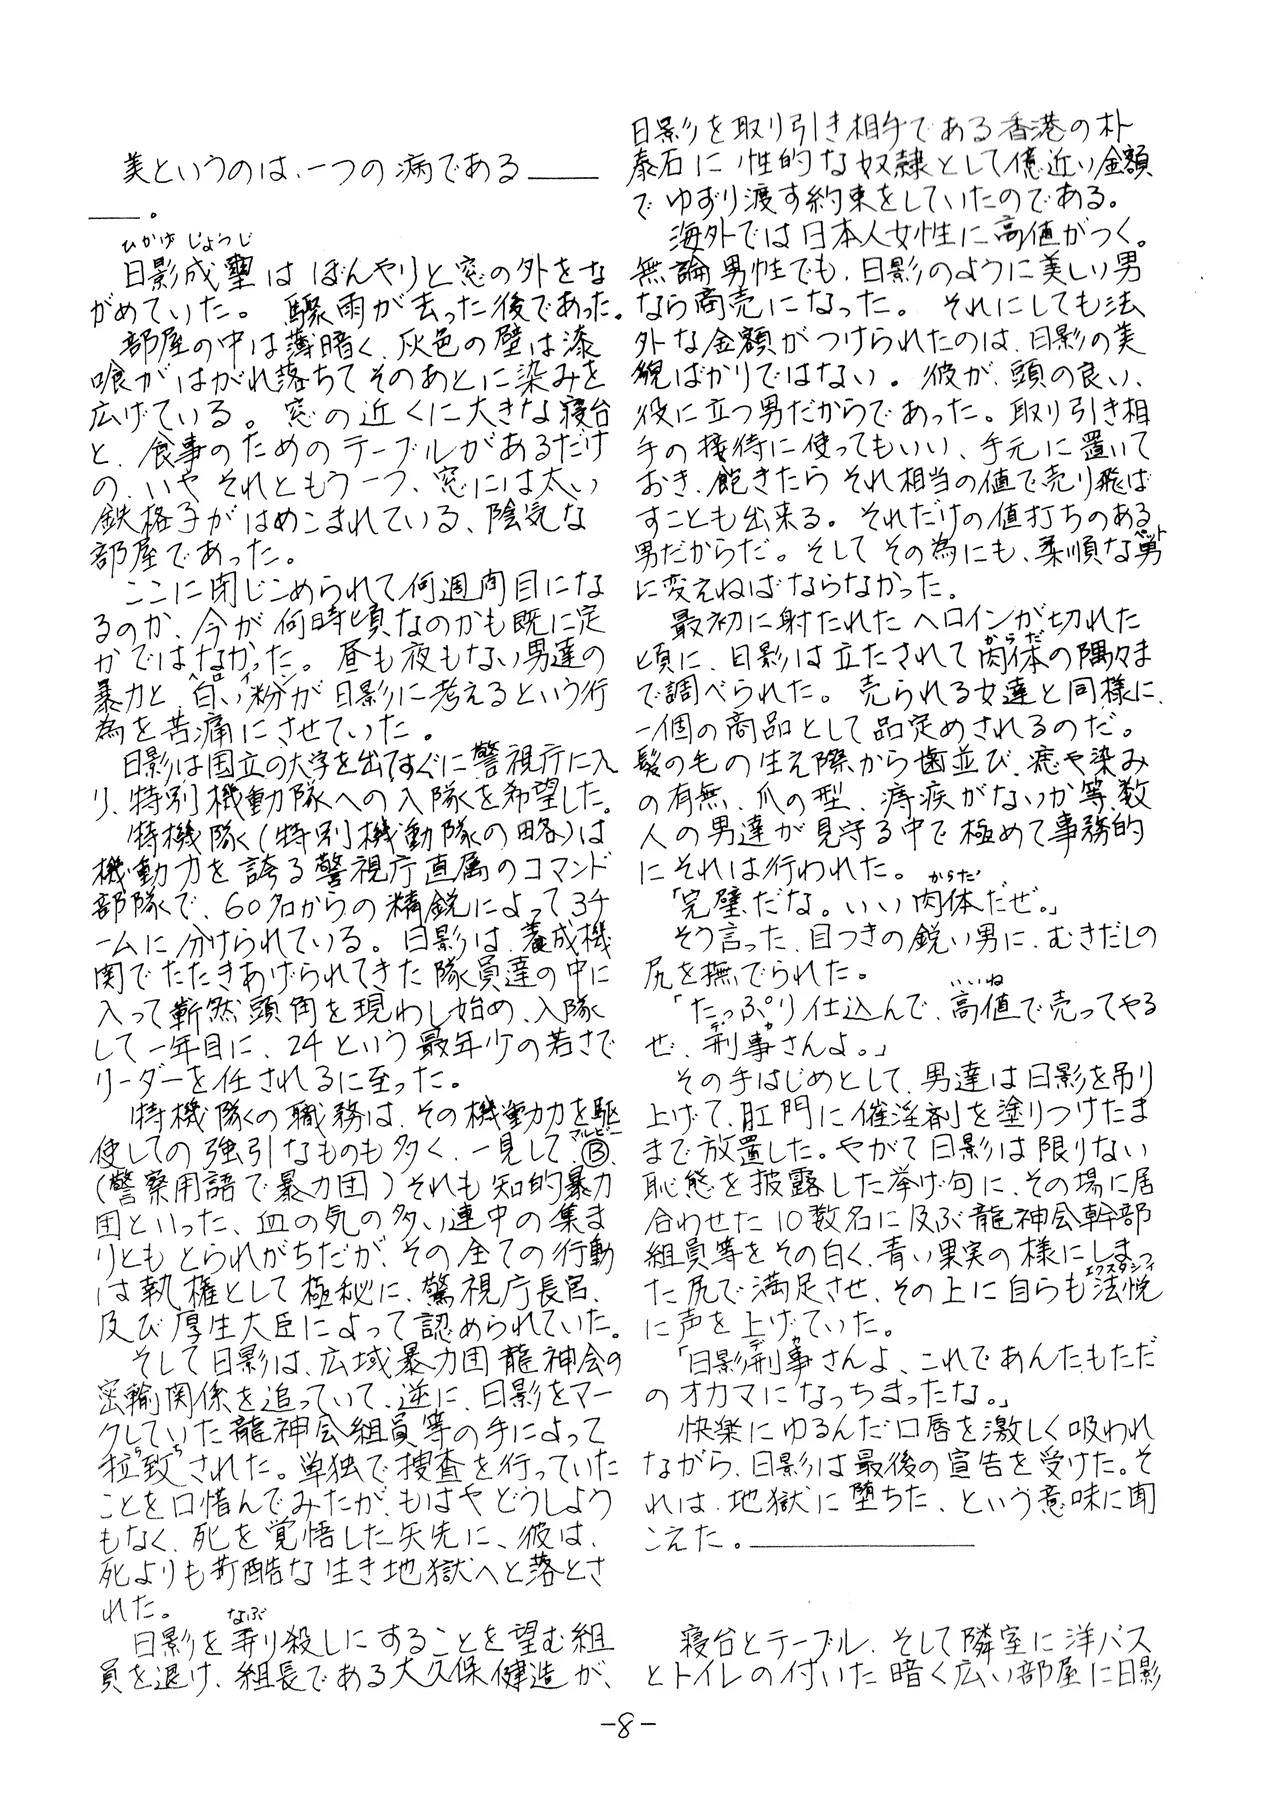 美というのは、一つの病である――
――。
ひかげ じょうじ
日影成璽はぼんやりと窓の外をな
がめていた。驟雨が去った後であった。
部屋の中は薄暗く、灰色の壁は漆
喰がはがれ落ちてそのあとに染みを
広げている。窓の近くに大きな寝台
と、食事のためのテーブルがあるだけ
の、いやそれともう一つ、窓には太い
鉄格子がはめこまれている、陰気な
部屋であった。
ここに閉じこめられて何週間目にな
るのか、今が何時頃なのかも既に定
かではなかった。昼も夜もない男達の
ヘロイン
暴力と、白い粉が日影に考えるという行
為を苦痛にさせていた。
日影は国立の大学を出てすぐに警視庁に入
り、特別機動隊への入隊を希望した。
特機隊く(特別機動隊の略)は
機動力を誇る警視庁直属のコマンド
部隊で、60名からの精鋭によって3チ
ームに分けられている。日影は、養成機
関でたたきあげられてきた隊員達の中に
入って斬然頭角を現わし始め、入隊
して一年目に、24という最年少の若さで
リーダーを任されるに至った。
特機隊くの職務は、その機動力を駆
マルビー
使しての強引なものも多く、一見してⒷ
(警察用語で暴力団)それも知的暴力
団といった、血の気の多い連中の集ま
りともとられがちだが、その全ての行動
は執権として極秘に、警視庁長官、
及び厚生大臣によって認められていた。
そして日影は、広域暴力団龍神会の
密輸関係を追っていて、逆に、日影をマー
クしていた龍神会組員等の手によって
らち
拉致された。単独で捜査を行っていた
ことを口惜んでみたが、もはやどうしよう
もなく、死を覚悟した矢先に、彼は、
死よりも苛酷な生き地獄へと落とさ
れた。
なぶ
日影を弄り殺しにすることを望む組
員を退け、組長である大久保健造が、
日影を取り引き相手である香港の朴
泰石に性的な奴隷として億近い金額
でゆずり渡す約束をしていたのである。
海外では日本人女性に高値がつく。
無論男性でも、日影のように美しい男
なら商売になった。それにしても法
外な金額がつけられたのは、日影の美
貌ばかりではない。彼が、頭の良い、
役に立つ男だからであった。取り引き相
手の接待に使ってもいい、手元に置いて
おき、飽きたらそれ相当の値で売り飛ば
すことも出来る。それだけの値打ちのある
ペット
男だからだ。そしてその為にも、柔順な男
に変えねばならなかった。
最初に射たれたヘロインが切れた
からだ
頃に、日影は立たされて肉体の隅々ま
で調べられた。売られる女達と同様に、
一個の商品として品定めされるのだ。
髪の毛の生え際から歯並び、痣や染み
の有無、爪の型、痔疾がないか等、数
人の男達が見守る中で極めて事務的
にそれは行われた。
からだ
「完璧だな。いい肉体だぜ。」
そう言った、目つきの鋭い男に、むきだしの
尻を撫でられた。
いいね
「たっぷり仕込んで、高値で売ってやる
デカ
ぜ、刑事さんよ。」
その手はじめとして、男達は日影を吊り
上げて、肛門に催淫剤を塗りつけたま
まで放置した。やがて日影は限りない
恥態を披露した挙げ句に、その場に居
合わせた10数名に及ぶ龍神会幹部
組員等をその白く、青い果実の様にしまっ
エクスタシィ
た尻で満足させ、その上に自らも法悦
に声を上げていた。
デカ
「日影刑事さんよ、これであんたもただ
のオカマになっちまったな。」
快楽にゆるんだ口唇を激しく吸われ
ながら、日影は最後の宣告を受けた。そ
れは、地獄に堕ちた、という意味に聞
こえた。――――――
寝台とテーブル、そして隣室に洋バス
とトイレの付いた暗く広い部屋に日影
-8-